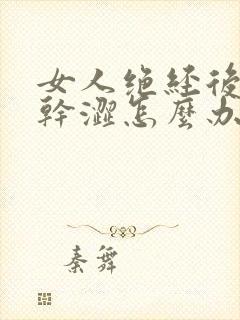 女人绝经後
幹澀怎麼办
秦舞